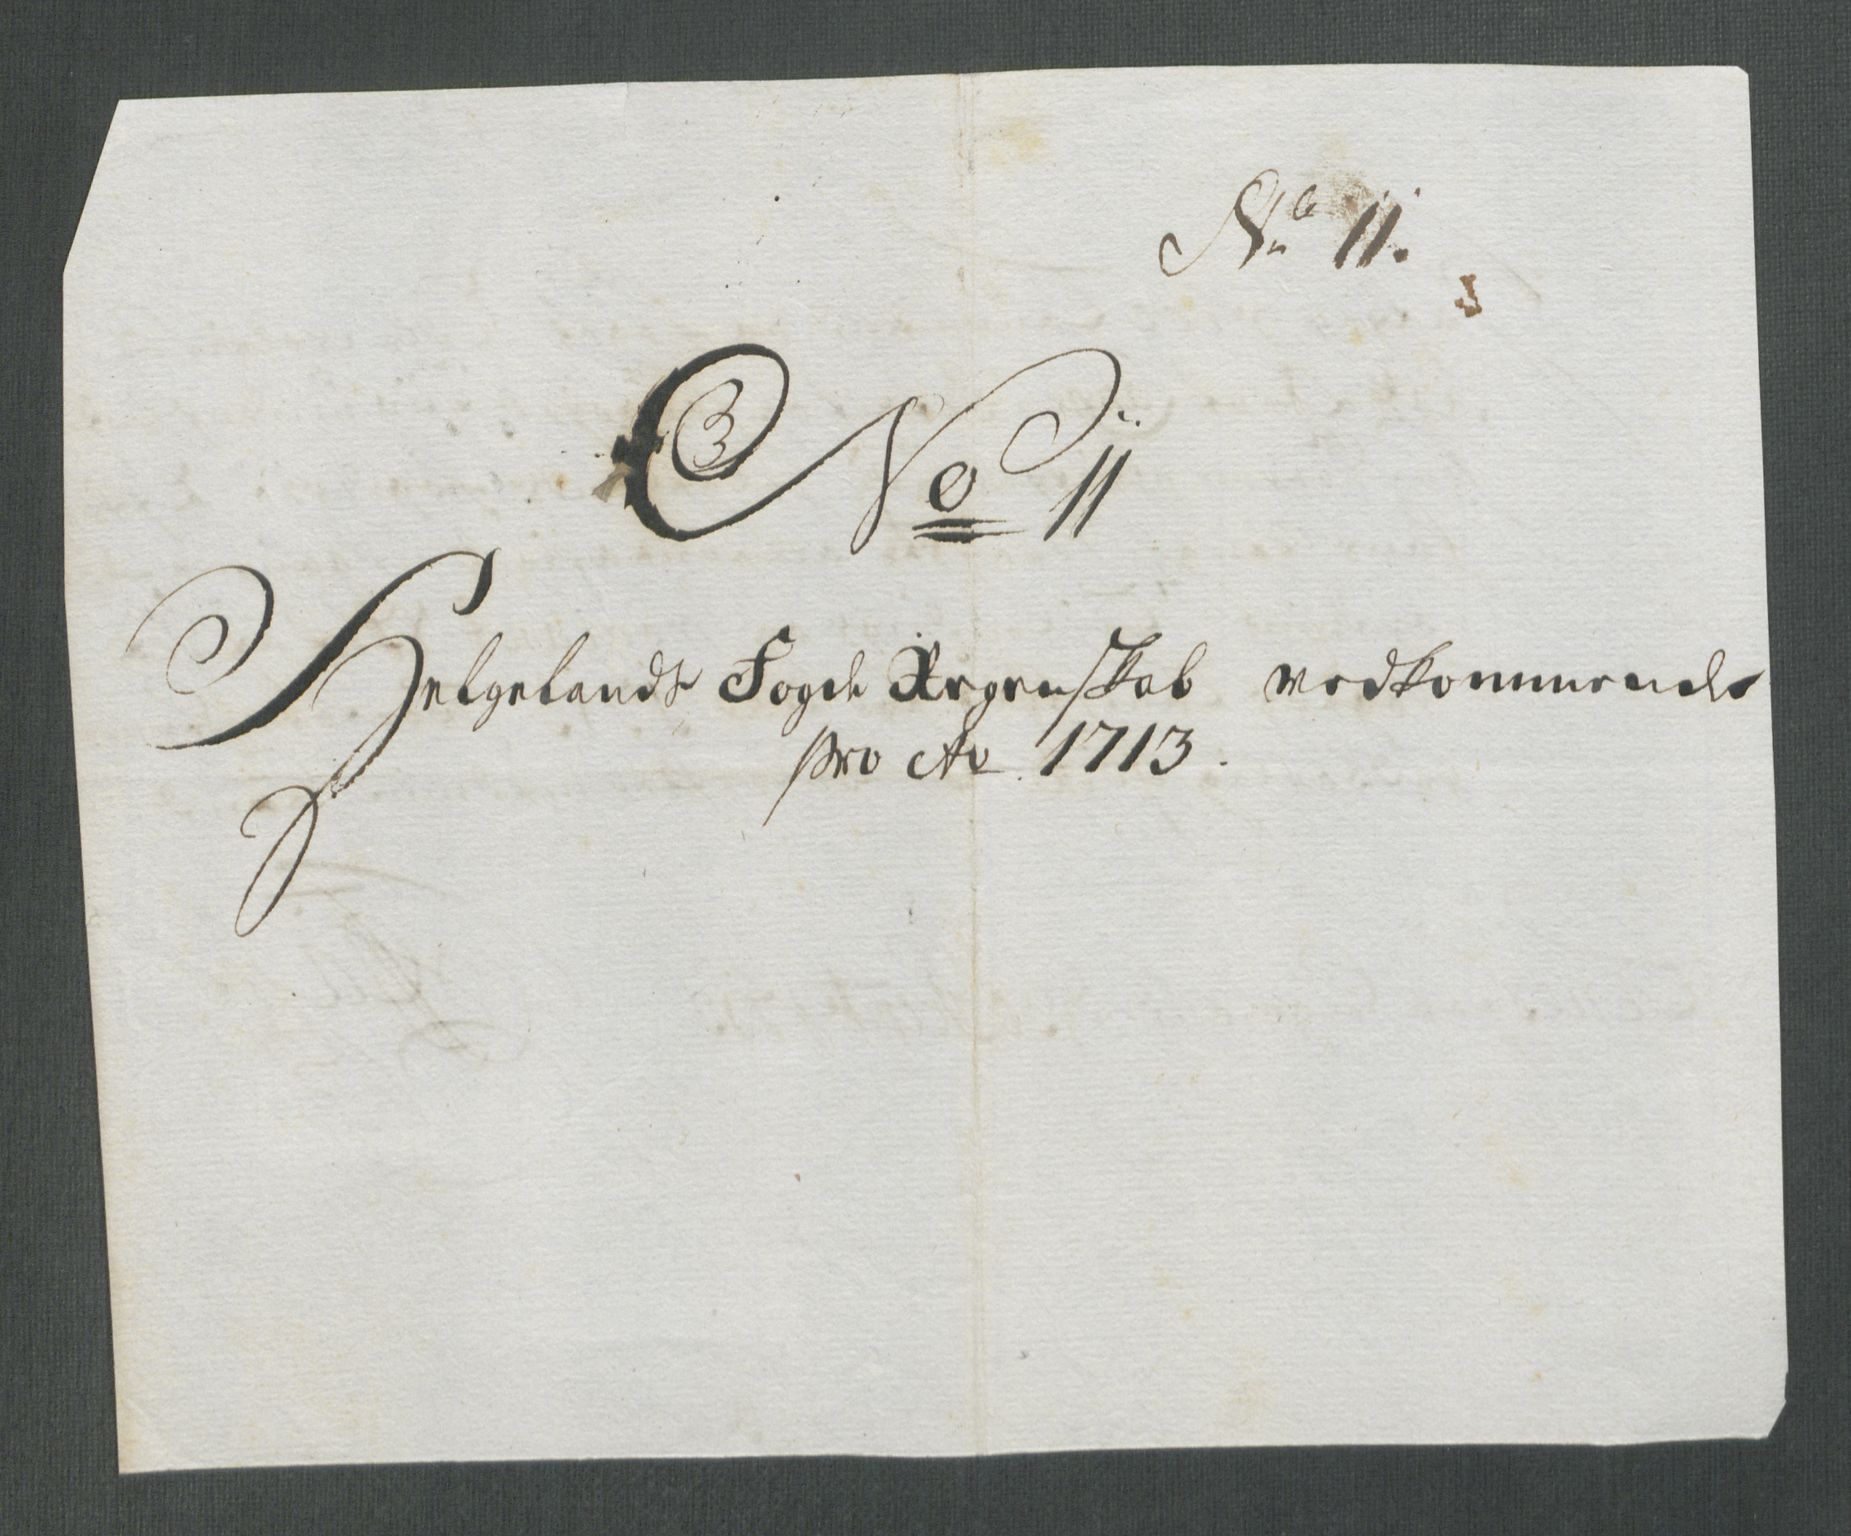 No 11.
No 11
Helgelands Fogde Regenskab vedkommende
pro Ao 1713.